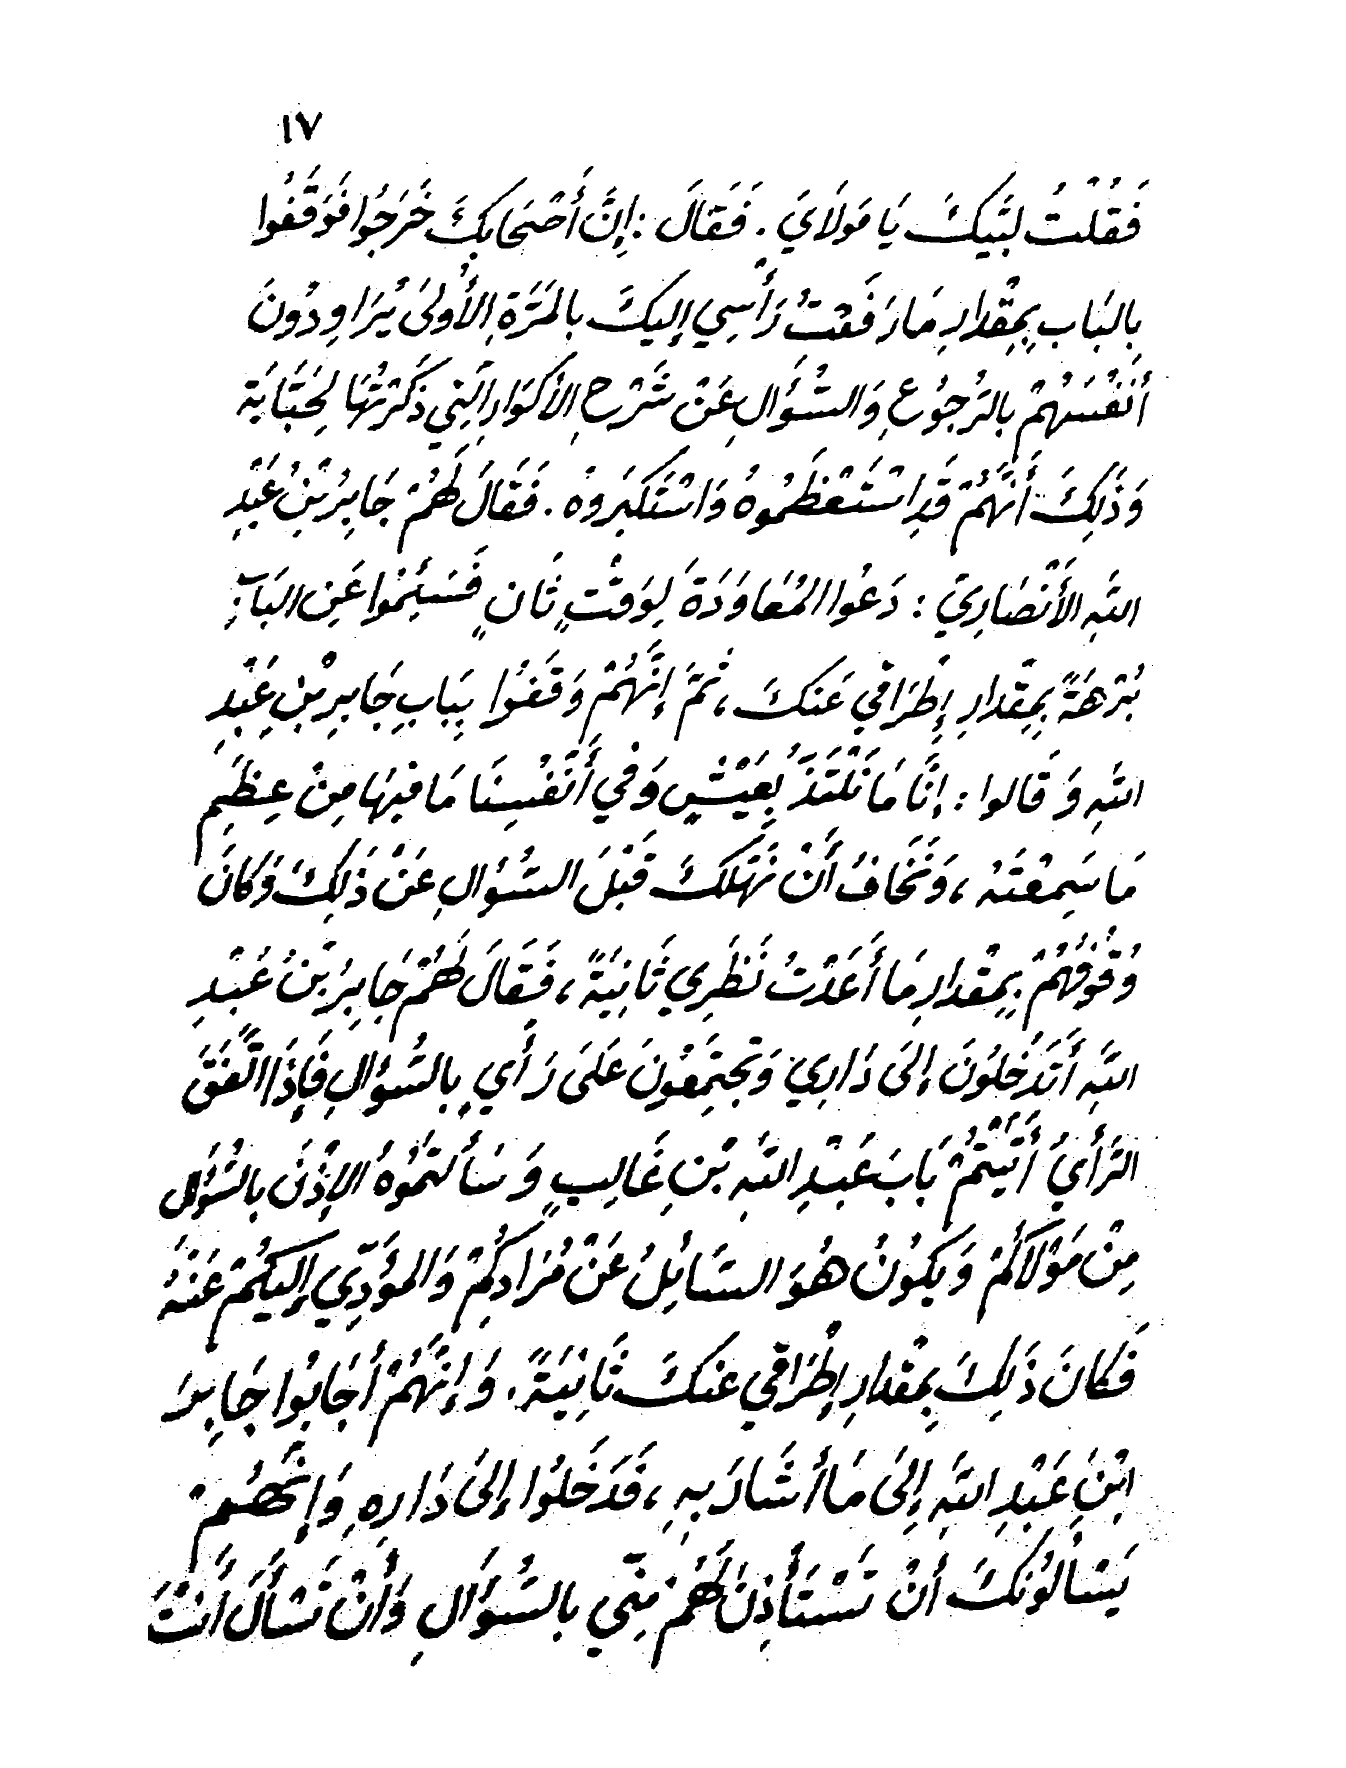 ١٧
فَقُلْتُ لَبَّيكَ يَا مَولَايَ . فَقَالَ : إِنَّ أَصْحَابِكَ خَرَجُوا فَوَقَفُوا
بِالبَابِ بِمِقْدَارِ مَا رَفَعْتُ رَأْسِي إِليكَ بِالمَرَّةِ الأُولَىٰ يُرَاوِدُونَ
أَنْفُسَهُمْ بِالرُجُوعِ وَالسُّؤَالِ عَنْ شَرْحِ الأَكوَارِ الَّتِي ذَكَرْتُهَا لِحَبَّابَة
وَذَلِكَ أَنَّهُمْ قَدِ اسْتَعْظَمُوهُ وَاسْتَكبَروهُ . فَقَالَ لَهُمْ جَابِرُ بْنُ عَبْدِ
اللَّهِ الأَنْصَارِيّ : دَعُوا المُعَاوَدَةَ لِوَقْتٍ ثَانٍ فَسَئِمُوا عَنِ البَابِ
بُرْهَةً بِمِقْدَارِ إِطْرَاقِي عَنكَ ، ثُمَّ إِنَّهُمْ وَقَفُوا بِبَابِ جَابِرِ بْنِ عَبْدِ
اللَّهِ وَقَالوا : إِنَّا مَا نَلْتَذُّ بِعَيْشٍ وَفِي أَنْفُسِنَا مَا فِيهَا مِنْ عِظَمِ
مَا سَمِعْتَهُ ، وَنَخَافُ أَنْ نَهْلكَ قَبْلَ السُّؤالِ عَنْ ذَلِكَ وَكَانَ
وُقُوفُهُمْ بِمِقْدارِ مَا أَعَدْتُ نَظَرِي ثَانِيَةً ، فَقَالَ لَهُمْ جَابِرُ بْنُ عَبْدِ
اللَّهِ أَتَدْخُلُونَ إِلَى دَارِي وَتَجْتَمِعُونَ عَلَى رَأْيٍ بِالسُّؤالِ فَإِذَا اتَّفَقَ
الرَّأْيُ أَتَيْتُمْ بَابَ عَبْدِ اللَّهِ بْنِ غَالِبٍ وَسَأَلتمُوهُ الإِذْنَ بِالسُّؤَالِ
مِنْ مَوْلَاكُمْ وَيَكُونُ هُوَ السَّائِلُ عَنْ مُرَادِكُمْ وَالمؤَدِّي إِليكُمْ عَنْهُ
فَكَانَ ذَلِكَ بِمِقْدَارِ إِطْرَاقِي عَنكَ ثَانِيَةً . وَإِنَّهُمْ أَجَابُوا جَابِرَ
ابْنَ عَبْدِ اللَّهِ إِلَى مَا أَشَارَ بِهِ ، فَدَخَلُوا إِلَى دَارِهِ وَإِنَّهُمْ
يَسْأَلُونَكَ أَنْ تَسْتَأْذِنَ لَهُمْ مِنِّي بِالسُّؤَالِ وَأَنْ تَسْأَلَ أَنْتَ